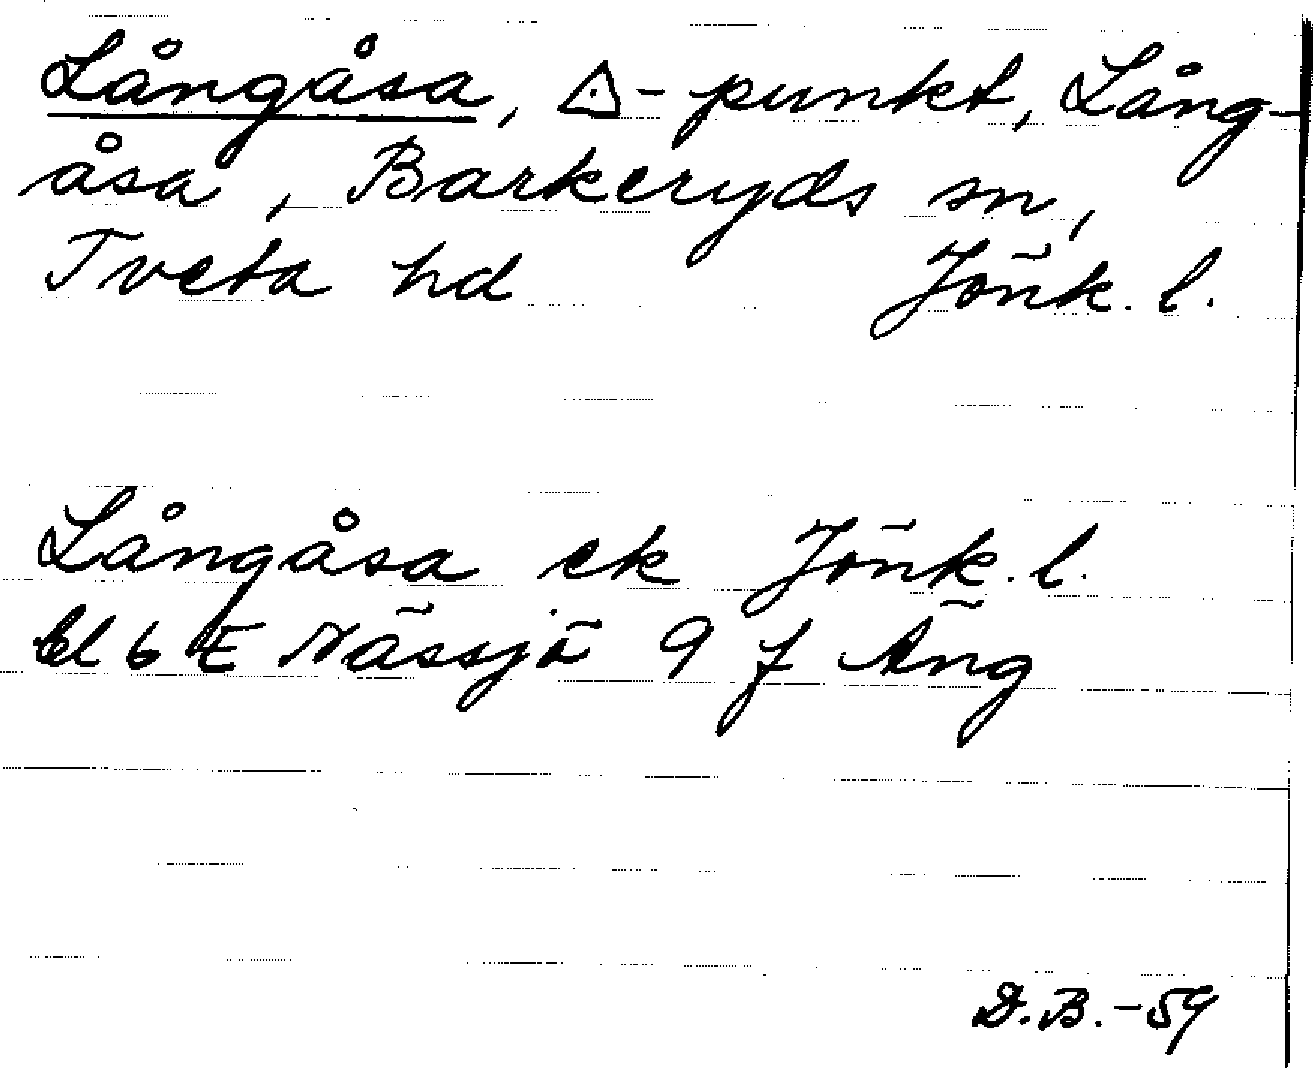 Långåsa, △-punkt, Lång-
åsa, Barkeryds sn,
Tveta hd Jönk. l.
Långåsa ek Jönk. l.
bl 6 E Nässjö 9 f Äng
D.B.-59